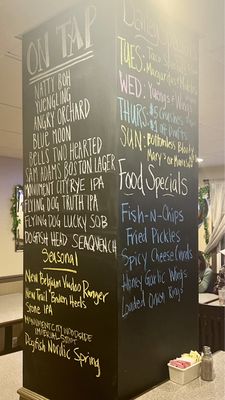 ON TAP
NATTY BOH
YUENGLING
ANGRY ORCHARD
BLUE MOON
BELLS TWO HEARTED
SAM ADAMS BOSTON LAGER
MONUMENT CITY RYE IPA
FLYING DOG TRUTH IPA
FLYING DOG LUCKY SOB
DOGFISH HEAD SEAQUENCH
Seasonal
New Belgium Voodoo Ranger
New Trail Broken Heels
STONE IPA
MONUMENT CITY
Dogfish Nordic Spring
Daily Specials
TUES: Taco
Margaritas
WED: Yuengs & Wings
THURS: $5 Crushes
Draffts
SUN: Bottomless Bloody
Mary's or Mimosas
Food Specials
Fish-N-Chips
Fried Pickles
Spicy Cheese Curds
Honey Garlic Wings
Loaded Onion Rings